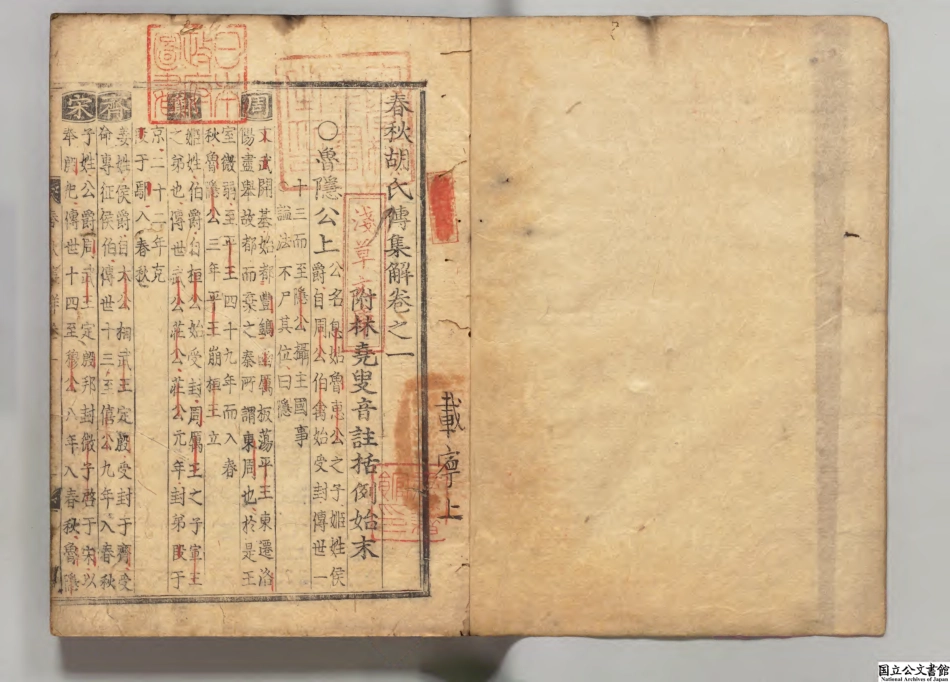 載寧上
春秋胡氏傳集解卷之一
附林堯叟音註括例始末
○魯隱公上
公名息姑魯惠公之子姬姓侯
爵自周公伯禽始受封傳世一
十三而至隱公攝主國事
謚法不尸其位曰隱
周
文武開基始都豐鎬幽厲板蕩平王東遷洛
陽盡舉故都而棄之秦所謂東周也於是王
室微弱至平王四十九年而入春
秋魯隱公三年平王崩桓王立
鄭
姬姓伯爵自桓公始受封周厲王之子宣王
之弟也傳世武公莊公莊公元年封弟段于
京二十二年克
段于鄢入春秋
齊
姜姓侯爵自太公相武王定殷受封于齊受
命專征侯伯傳世十三至僖公九年入春秋
宋
子姓公爵周武王定殷邦封微子啓于宋以
奉殷祀傳世十四至穆公八年入春秋魯隱
日本
政府
圖書
淺草文庫
国立公文書館
National Archives of Japan